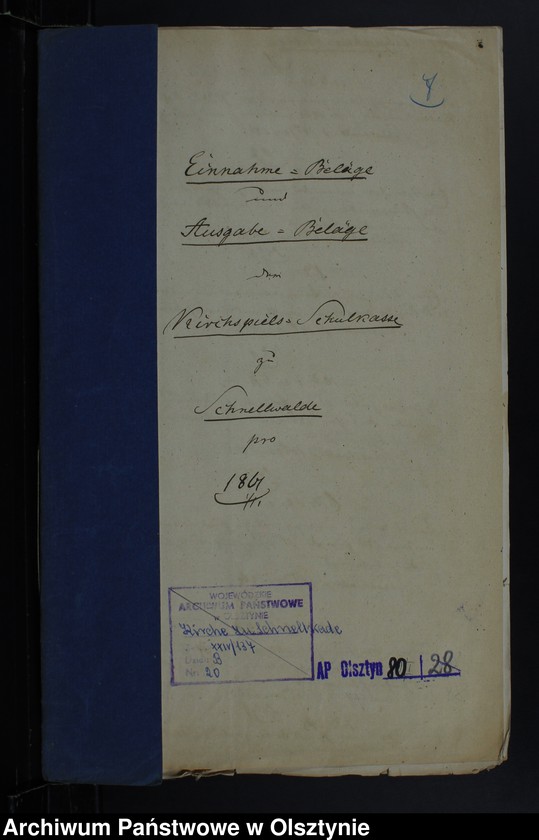 Einnahme = Beläge
und
Ausgabe = Beläge
der
Kirchspiels = Schulkasse
zu
Schnellwalde
pro
1861
WOJEWÓDZKIE
ARCHIWUM PAŃSTWOWE
w OLSZTYNIE
Kirche zu Schnellwalde
XXIV/137
B
Nr 20
AP Olsztyn 80 28
Archiwum Państwowe w Olsztynie